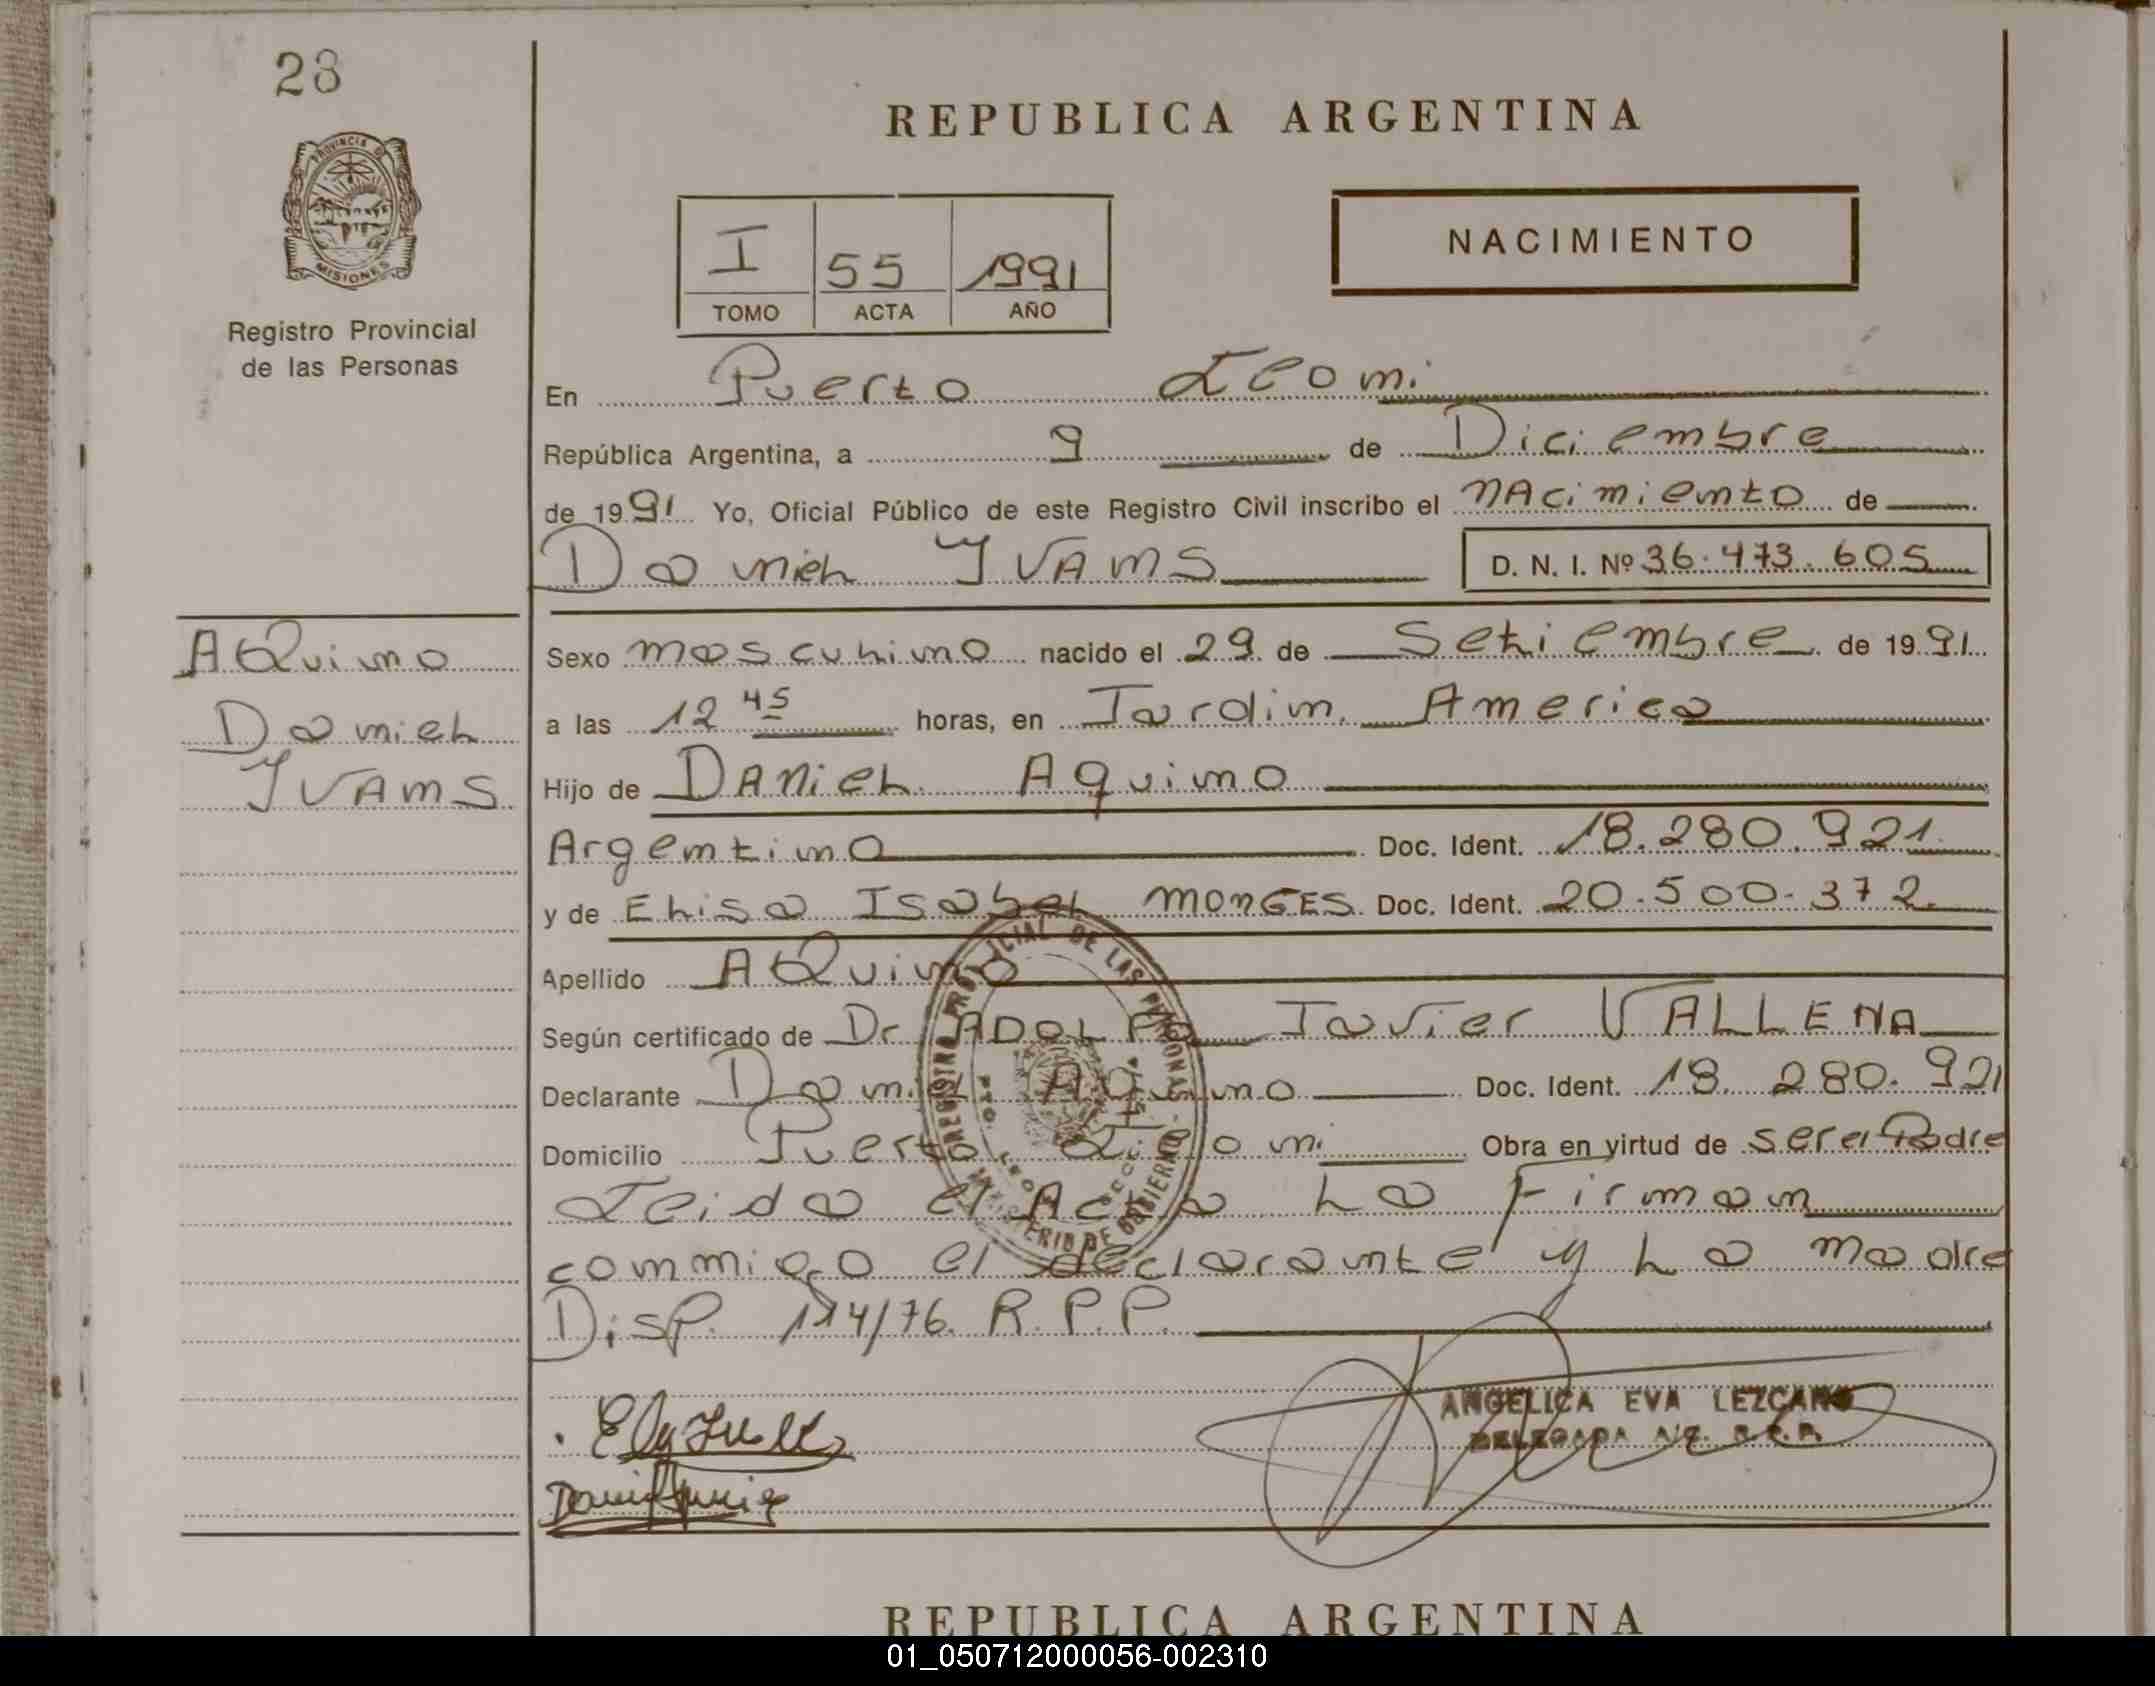 28
REPUBLICA ARGENTINA
PROVINCIA DE
MISIONES
Registro Provincial
de las Personas
NACIMIENTO
I 55 1991
TOMO ACTA AÑO
En Puerto Leoni
República Argentina, a 9 de Diciembre
de 1991 Yo, Oficial Público de este Registro Civil inscribo el nacimiento de
Daniel IVANS D. N. I. Nº 36.473.605
Aquino
Daniel
IVANS
Sexo masculino nacido el 29 de Setiembre de 1991
a las 12 45 horas, en Jardin America
Hijo de DANIEL Aquino
Argentino Doc. Ident. 18.280.921
y de Elisa Isabel MONGES Doc. Ident. 20.500.372
Apellido AQuino
Según certificado de Dr. ADOLFO Javier VALLENA
Declarante Daniel Aquino Doc. Ident. 18.280.921
Domicilio Puerto Leoni Obra en virtud de ser el Padre
Leida el Acta La Firman
conmigo el declarante y La madre
Disp. 114/76. R.P.P.
REGISTRO PROVINCIAL DE LAS PERSONAS
MINISTERIO DE GOBIERNO
ANGELICA EVA LEZCANO
DELEGADA A/C. R.P.P.
REPUBLICA ARGENTINA
01_050712000056-002310